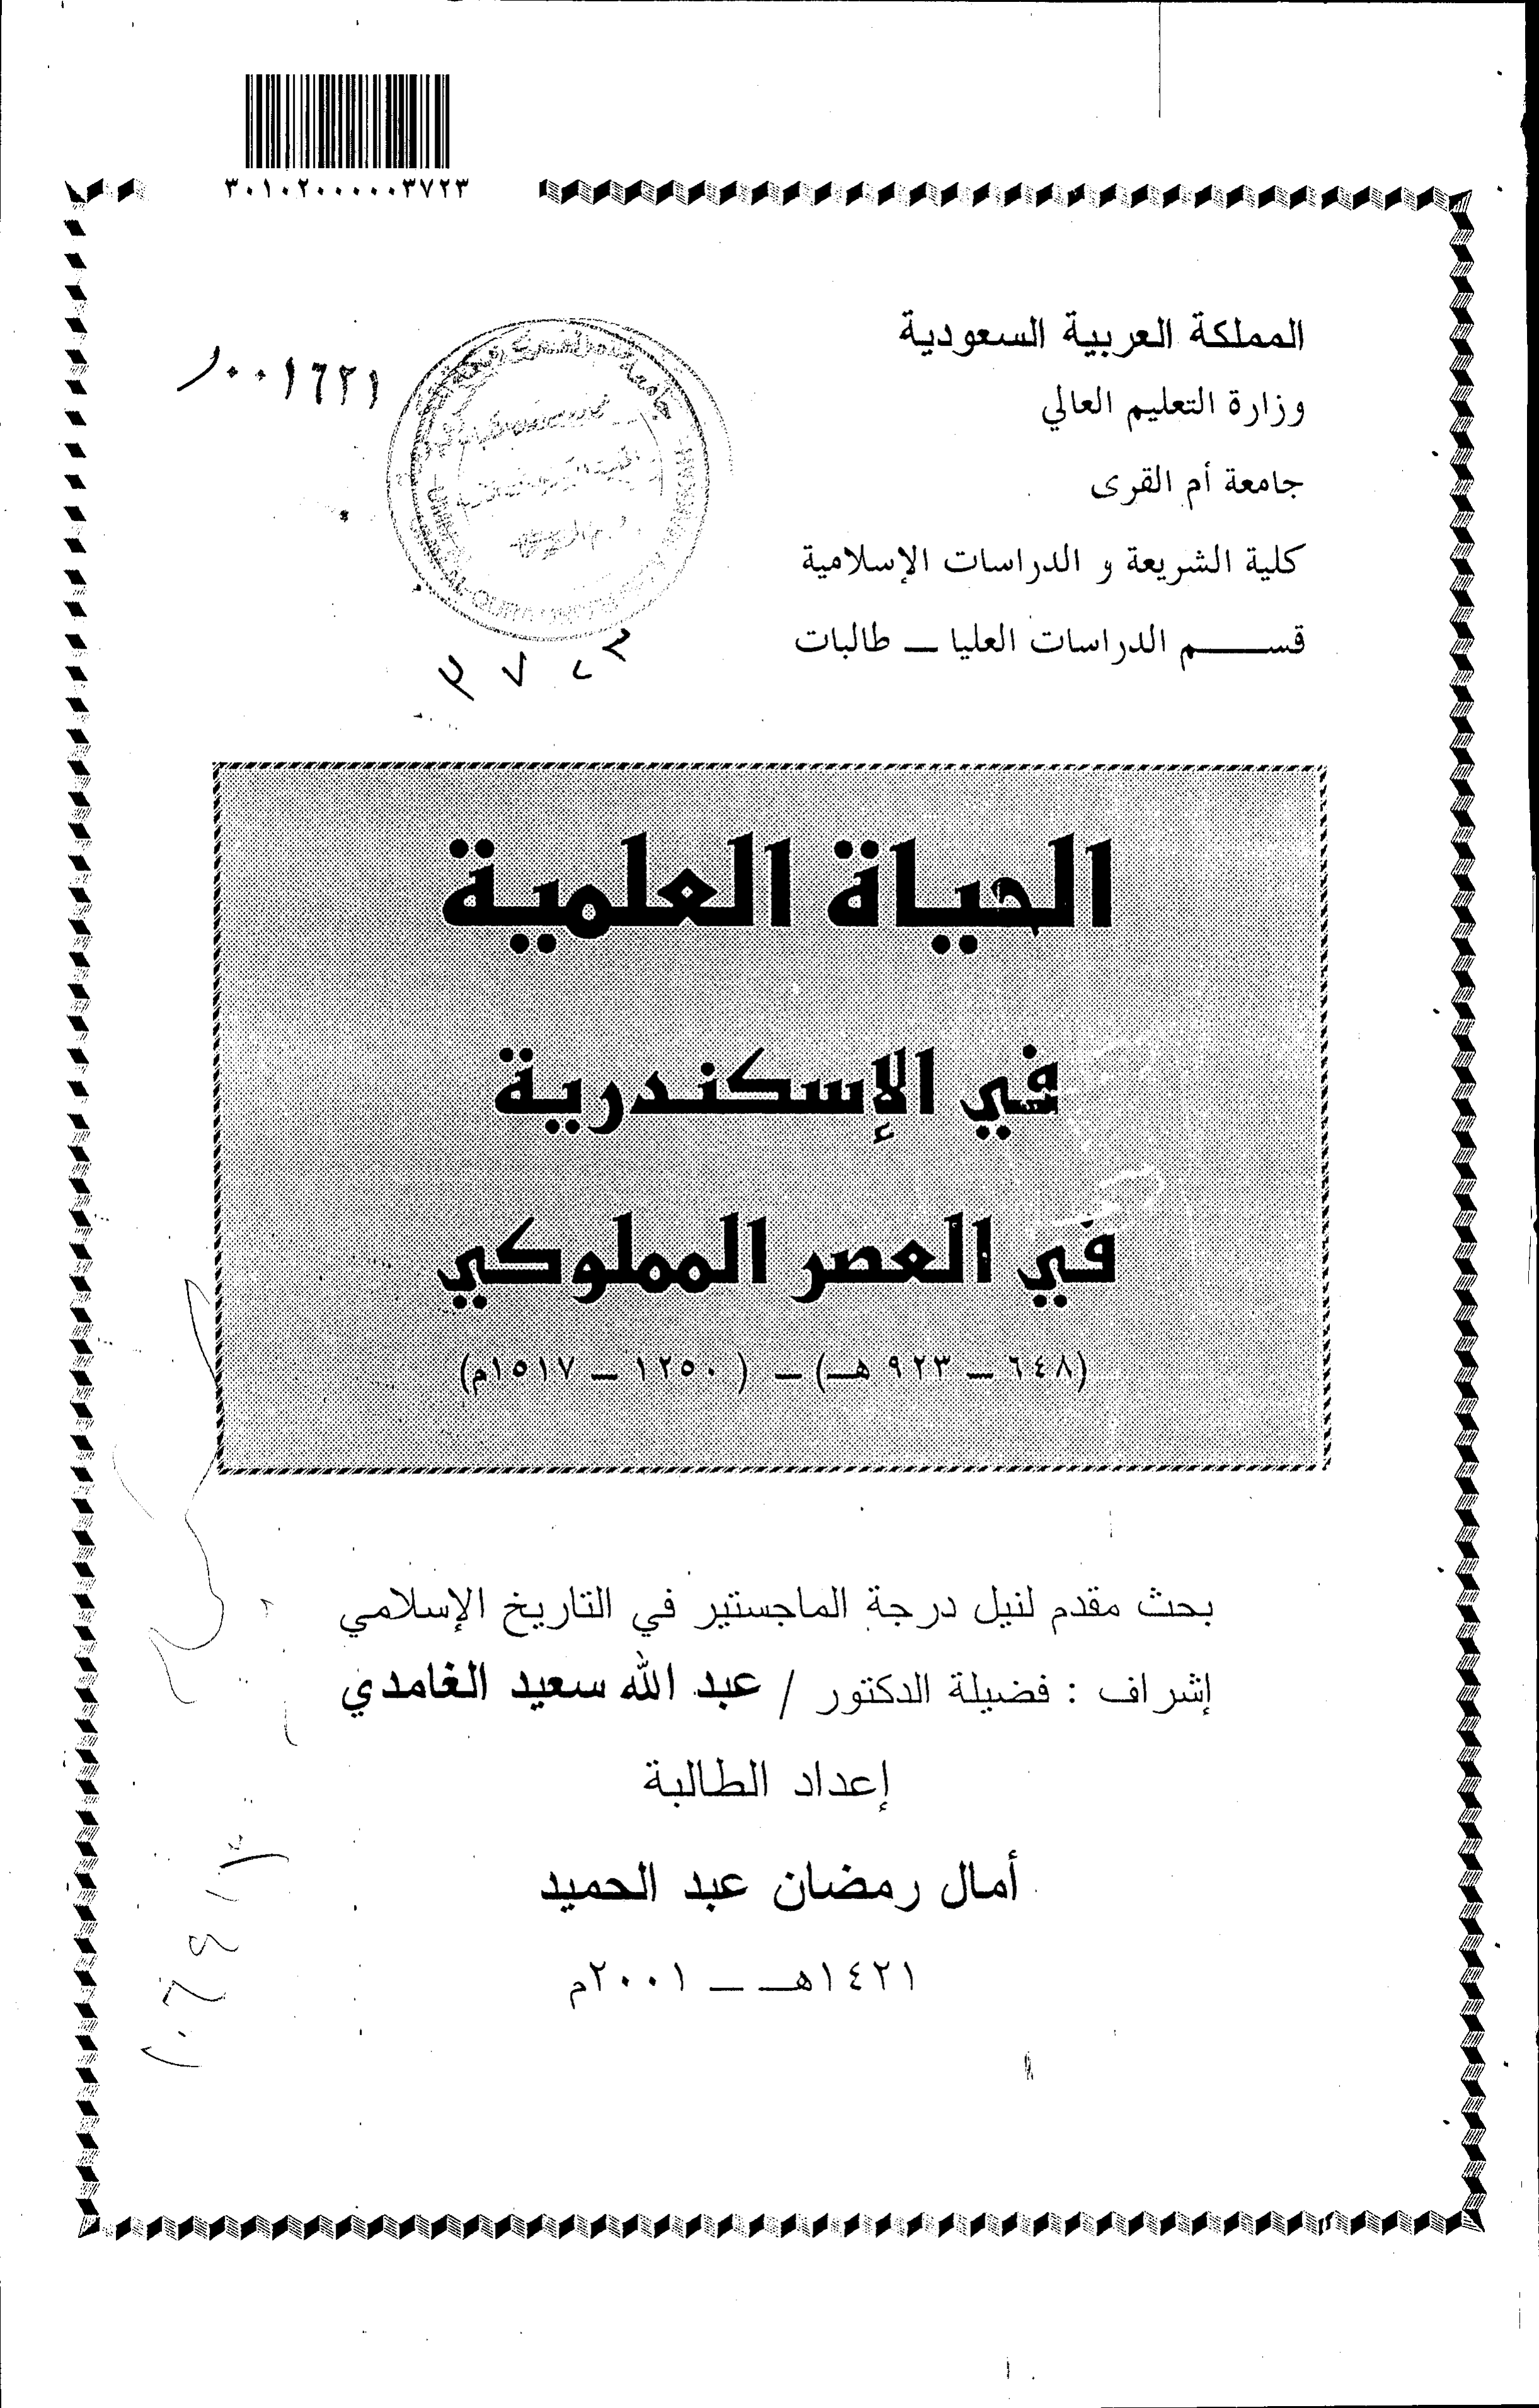 ٣٠١٠٢٠٠٠٠٠٣٧٢٣
المملكة العربية السعودية
وزارة التعليم العالي
جامعة أم القرى
كلية الشريعة و الدراسات الإسلامية
قســـــم الدراسات العليا ــ طالبات
١٠٠١٦٢١
٣٧٢٣
الحياة العلمية
في الإسكندرية
في العصر المملوكي
(٦٤٨ ــ ٩٢٣ هــ) ــ ( ١٢٥٠ ــ ١٥١٧م)
بحث مقدم لنيل درجة الماجستير في التاريخ الإسلامي
إشراف : فضيلة الدكتور / عبد الله سعيد الغامدي
إعداد الطالبة
أمال رمضان عبد الحميد
١٤٢١هــ ــ ٢٠٠١م